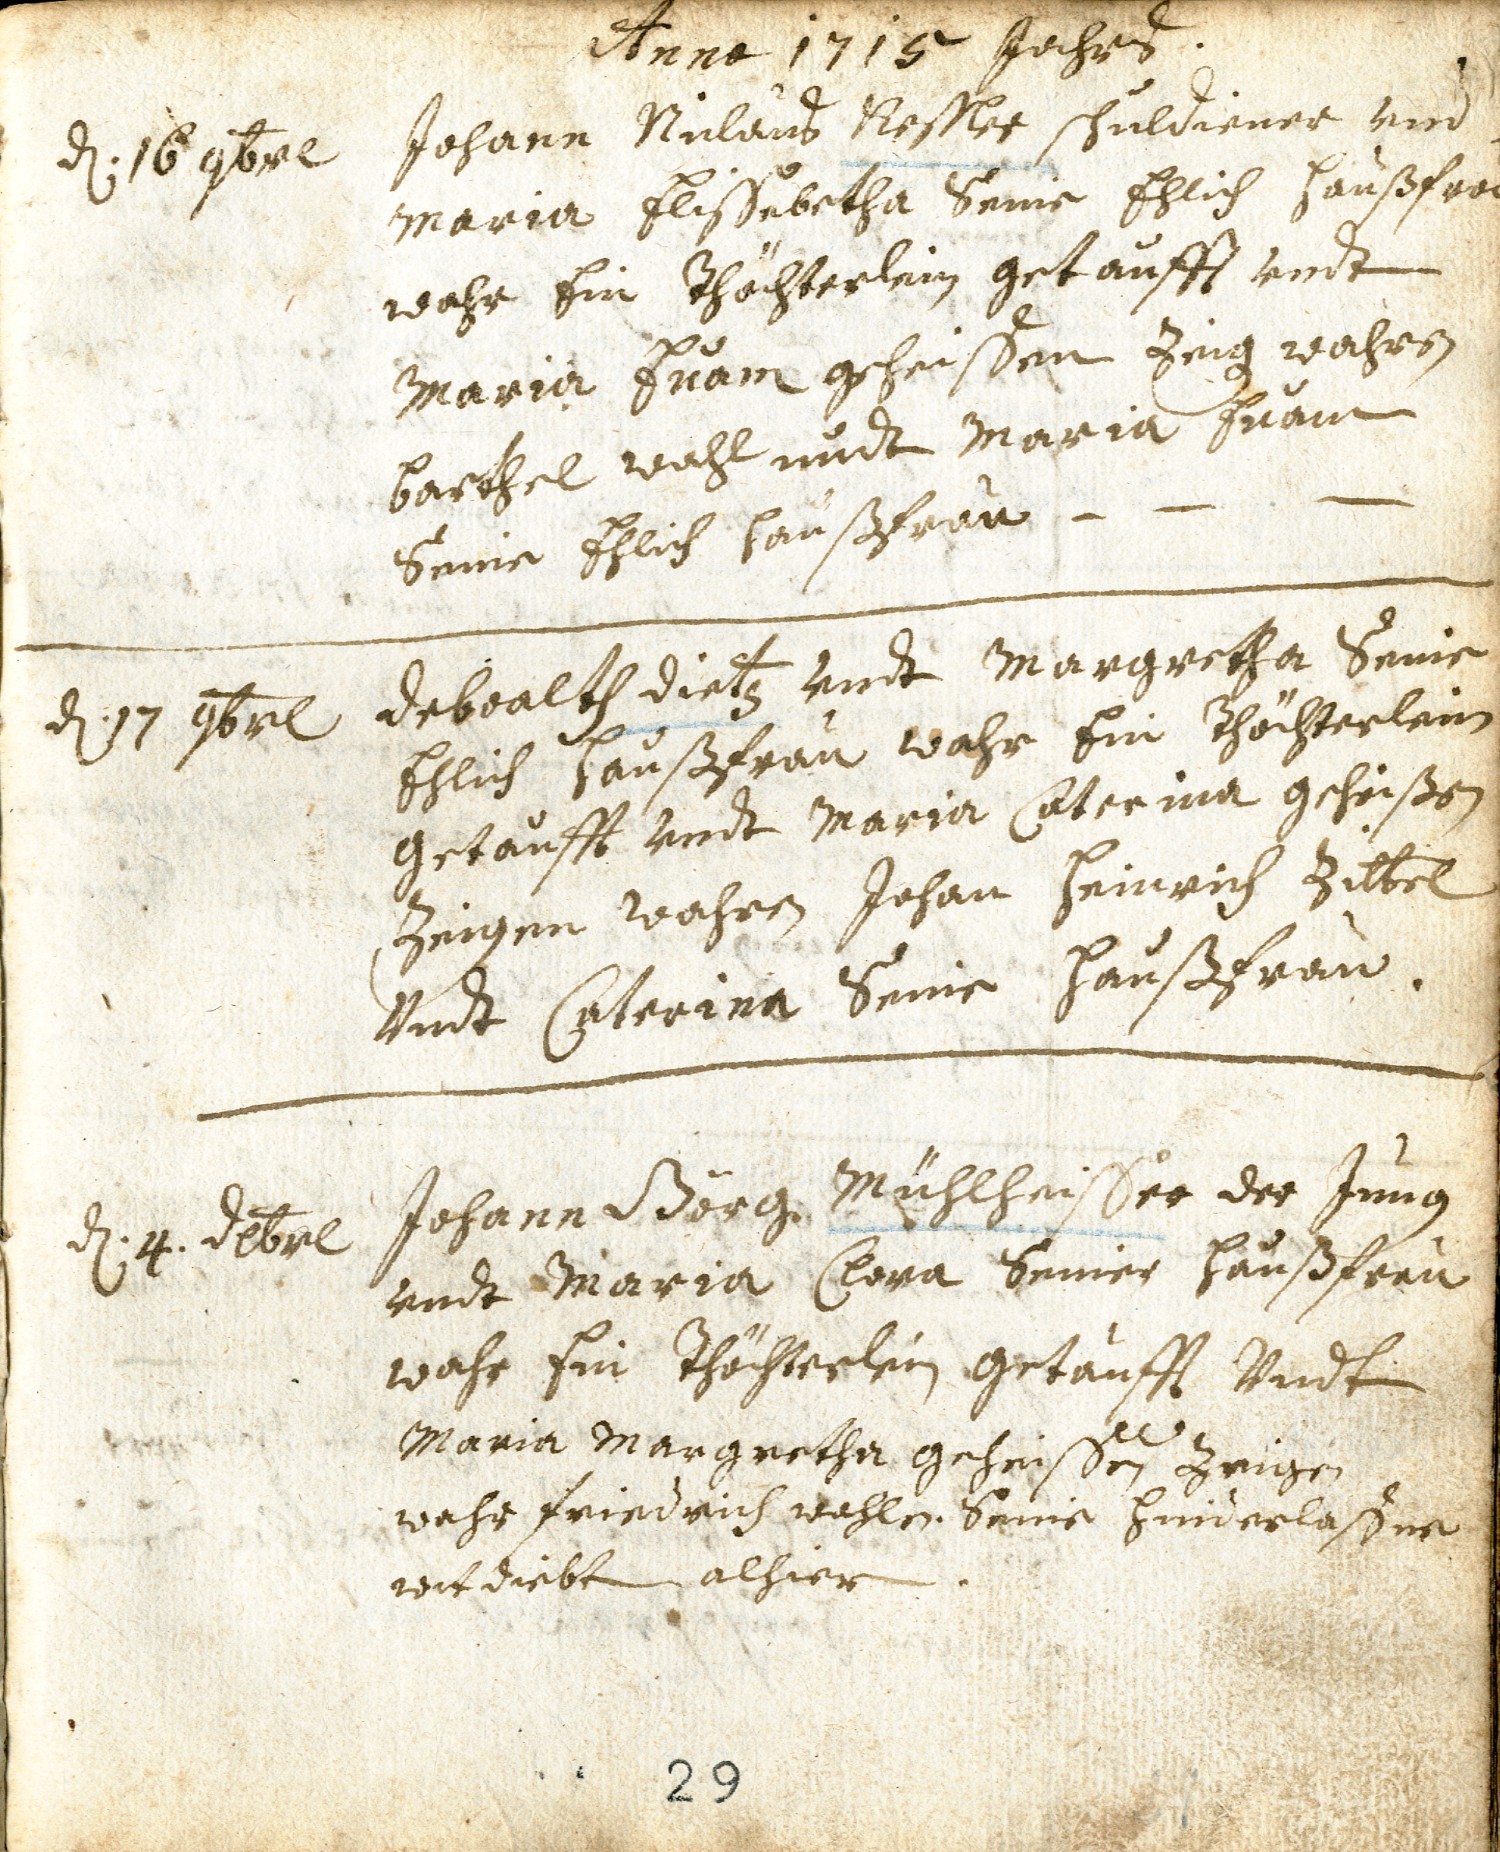 Anno 1715 Jahrs.
d. 16 9brl Johann Niclaus Kessler schuldiener und
Maria Elissabetha Seine Ehlich haußfrau
wahr Ein Thöchterlein getaufft undt
Maria Evam geheissen Zeig wahren
barthel wahl undt Maria Evam
Seine Ehlich haußfrau - - -
d. 17 9brl dietz Undt Margretha Seine
Ehlich haußfrau wahr Ein Thöchterlein
getaufft undt Maria Caterina geheißen
Zeigen wahren Johan Heinrich
Undt Caterina Seine haußfrau.
d. 4. Johann Görg Mühlheisser der Jung
undt Maria Clara Seiner haußfrau
wahr Ein Thöchterlein getaufft Undt
Maria Margretha geheissen Zeigen
wahr friedrich wahlen Seine hinderlassne
witdiebt alhier.
29